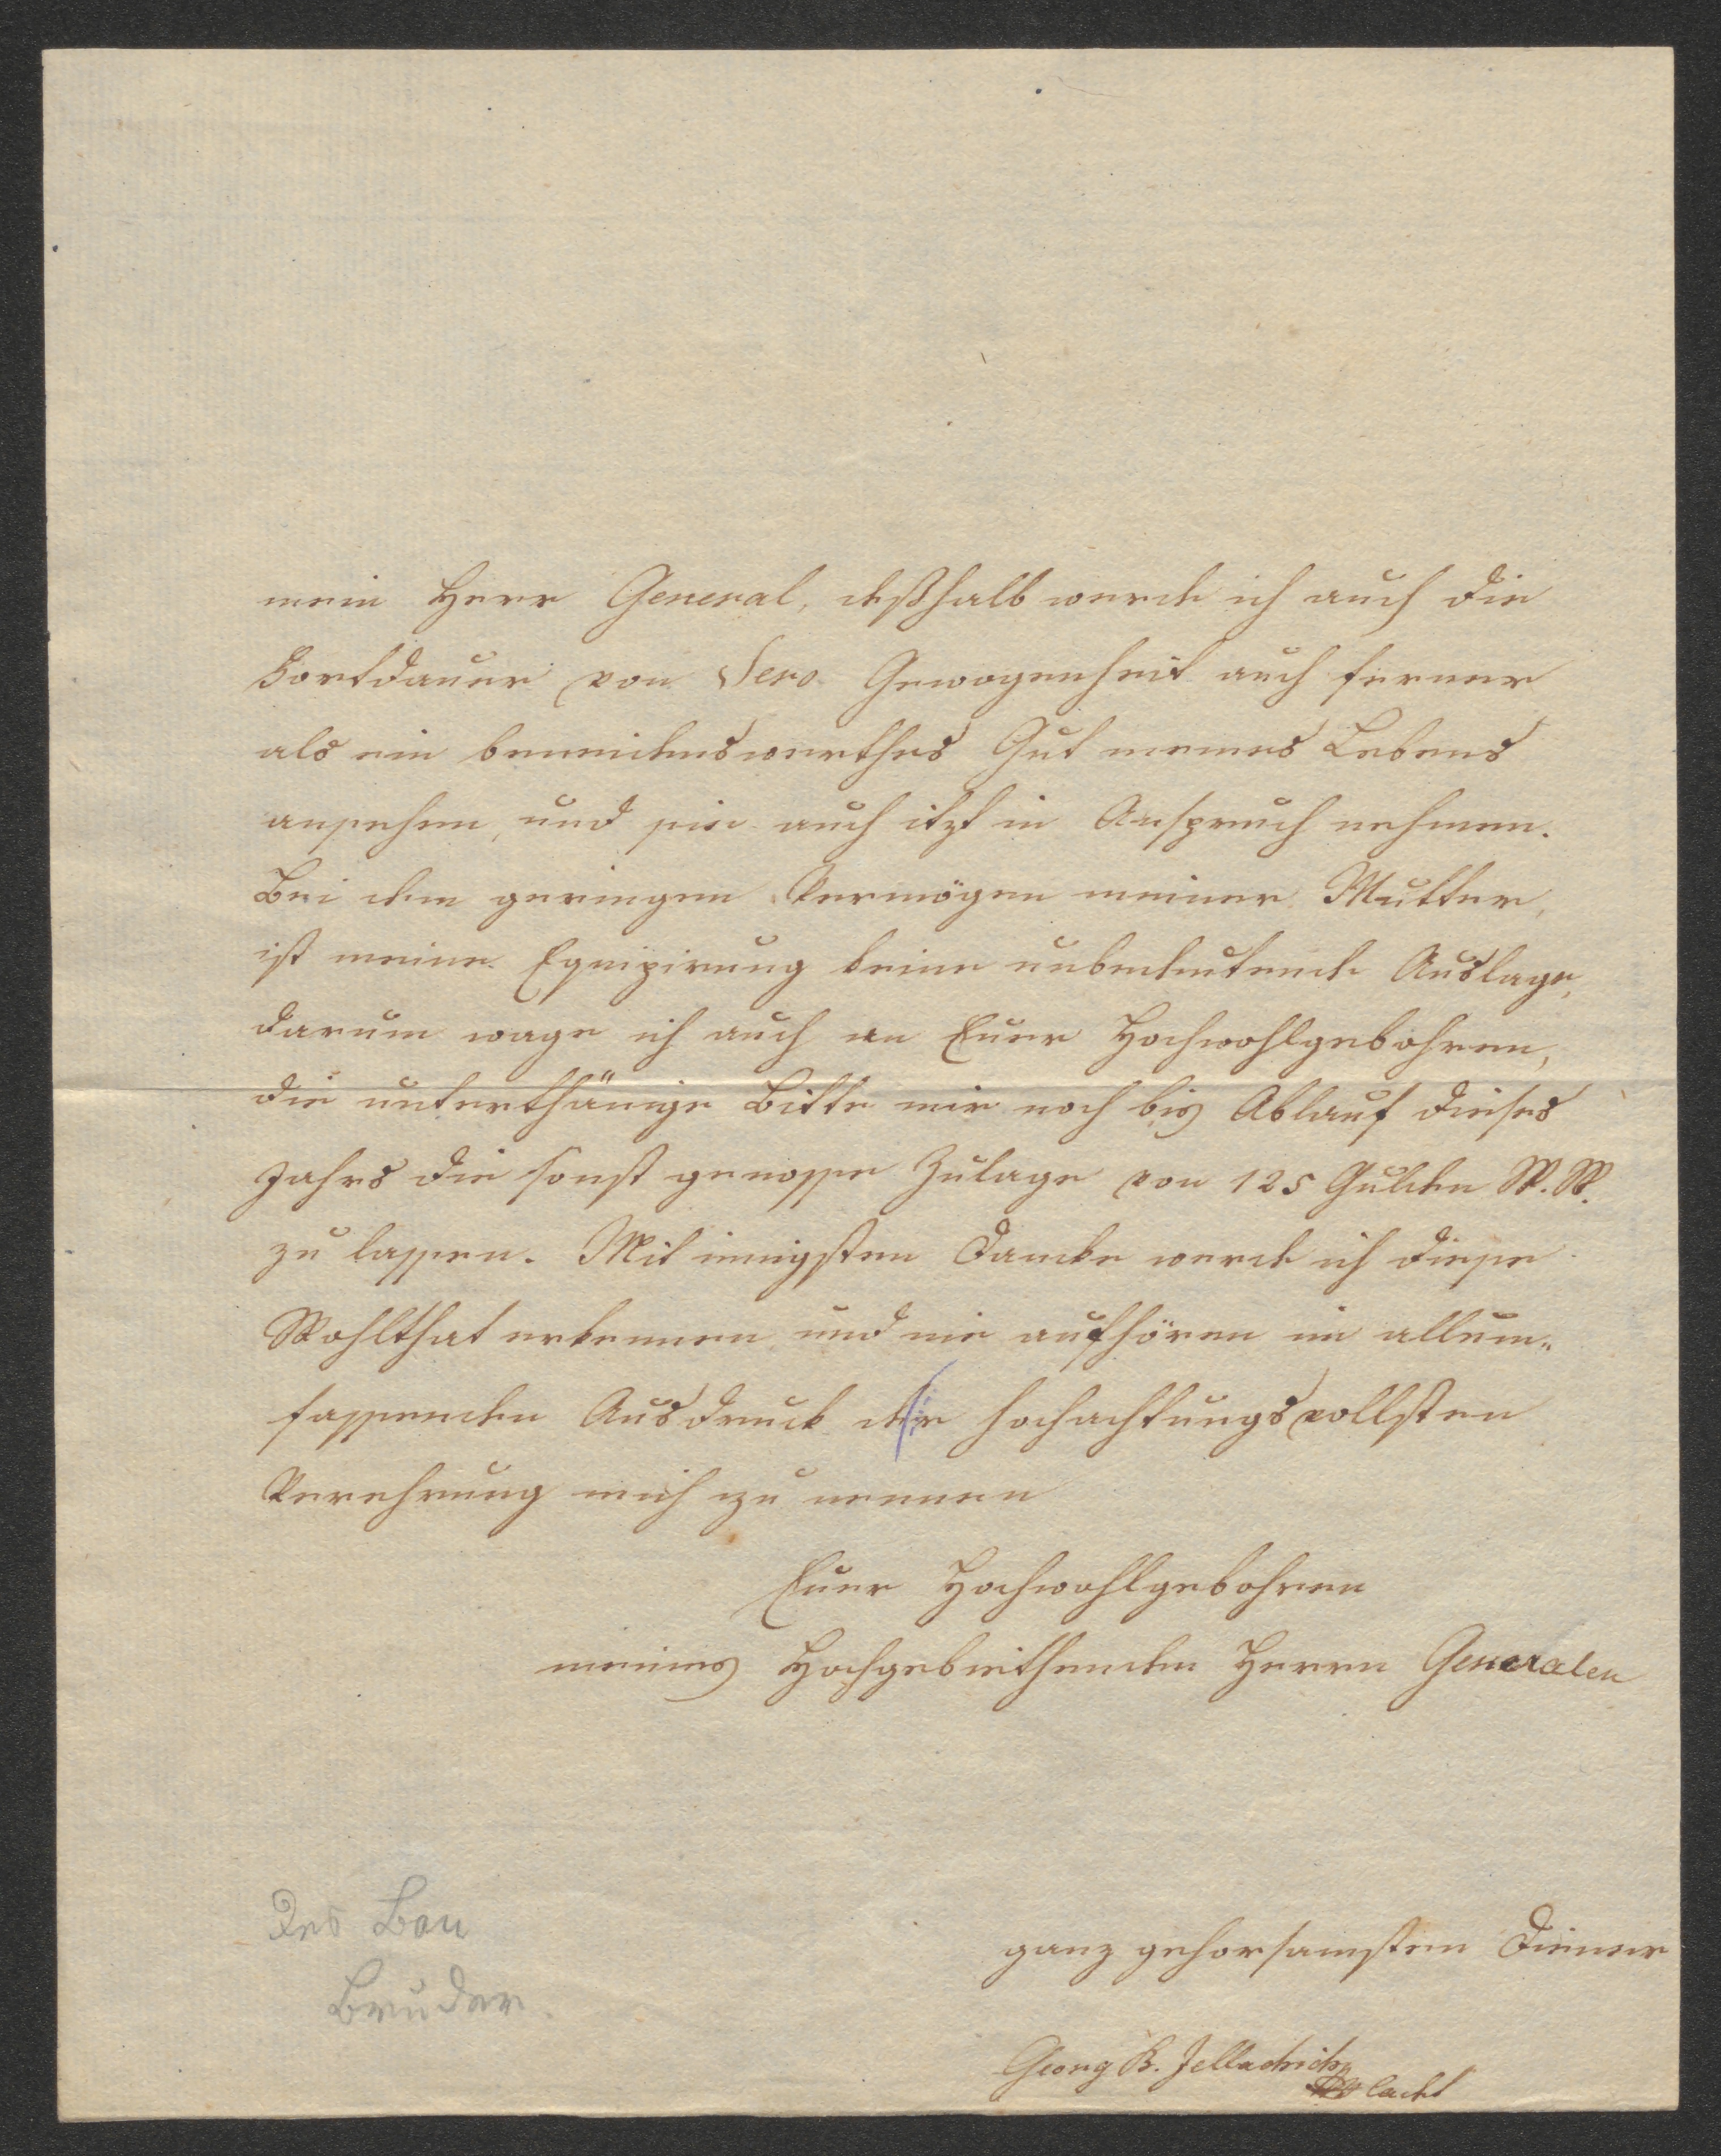 mein Herr General, deßhalb werde ich auch die
Fortdauer von Dero Gewogenheit auch ferner
als ein beneidenswerthes Gut meines Lebens
ansehen, und sie auch itzt in Anspruch nehmen.
Bei dem geringen Vermögen meiner Mutter,
ist meine Equipirung keine unbedeutende Auslage,
darum wage ich auch an Euer Hochwohlgebohren,
die unterthänige Bitte mir noch bis Ablauf dieses
Jahrs die sonst genosse Zulage von 125 Gulden W. W.
zu lassen. Mit innigsten Dancke werde ich diese
Wohlthat erkennen und nie aufhören im allum-
fassenden Ausdruck der hochachtungsvollsten
Verehrung mich zu nennen
Euer Hochwohlgebohren
meines Hochgebiethenden Herrn Generalen
Des Ban
Bruder.
ganz gehorsamsten Diener
Georg B. Jellachich